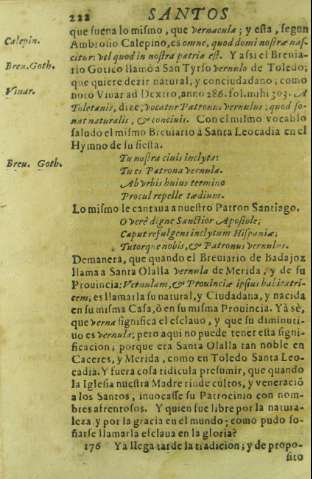 222 SANTOS
Calepin.
Breu. Goth.
Vivar.
Breu. Goth.
que suena lo mismo, que vernacula; y esta, segun
Ambrosio Calepino, es omne, quod domi nostræ nas-
citur: vel quod in nostra patria est. Y assi el Brevia-
rio Gotico llamò a San Tyrso vernulo de Toledo;
que quiere dezir natural, y conciudadano; como
notò Vivar ad Dextro, anno 286. fol. mihi 303. A
Toletanis, dize, vocatur Patronus vernulus; quod so-
nat naturalis, & concivis. Con el mismo vocablo
saludò el mismo Breviario à Santa Leocadia en el
Hymno de su fiesta.
Tu nostra civis inclyta:
Tu es Patrona vernula.
Ab urbis huius termino
Procul repelle tædium.
Lo mismo le cantava a nuestro Patron Santiago.
O verè digne Sanctior Apostole;
Caput refulgens inclytum Hispaniæ;
Tutorque nobis, & Patronus vernulus.
Demanera, que quando el Breviario de Badajoz
llama a Santa Olalla vernula de Merida, y de su
Provincia: Vernulam, & Provinciæ ipsius habitatri-
cem, es llamarla su natural, y Ciudadana, y nacida
en su misma Casa, ò en su misma Provincia. Yà sè,
que verna significa el esclavo, y que su diminuti-
vo es vernula; pero aqui no puede tener esta signi-
ficacion; porque era Santa Olalla tan noble en
Caceres, y Merida, como en Toledo Santa Leo-
cadia. Y fuera cosa ridicula presumir, que quando
la Iglesia nuestra Madre rinde cultos, y veneraciò
a los Santos, invocasse su Patrocinio con nom-
bres afrentosos. Y quien fue libre por la natura-
leza, y por la gracia en el mundo; como pudo so-
ñarse llamarla esclava en la gloria?
176 Ya llega tarde la tradicion; y de propo-
sito